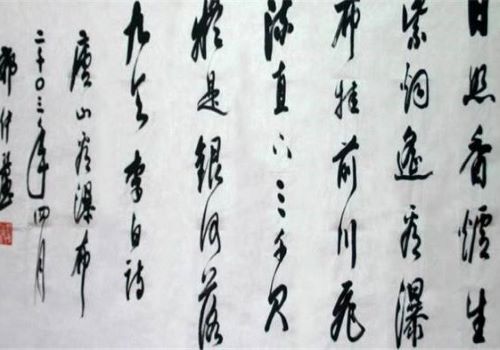 日照香爐生
紫烟遙看瀑
布挂前川飛
流直下三千尺
疑是銀河落
九天 李白詩
廬山看瀑布
二千〇三年四月